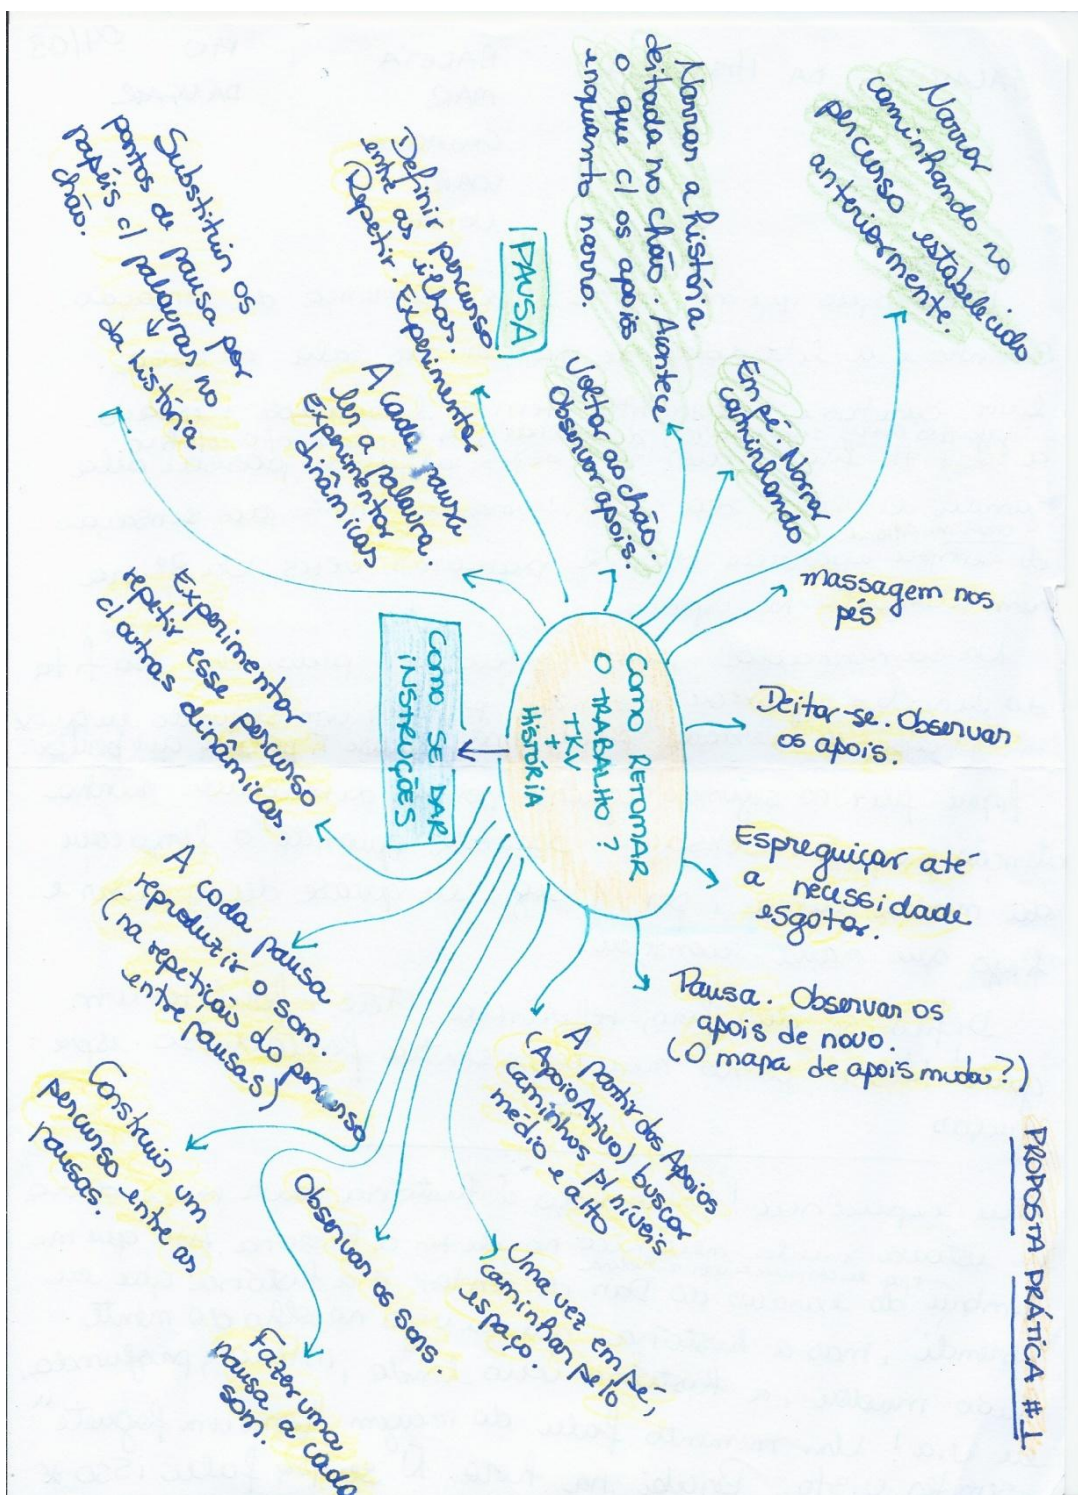 PROPOSTA PRÁTICA #1
COMO RETOMAR
O TRABALHO?
TKV
+
HISTÓRIA
COMO SE DAR
INSTRUÇÕES
massagem nos
pés
Deitar-se. Observar
os apois.
Espreguiçar até
a necessidade
esgotar.
Pausa. Observar os
apois de novo.
(O mapa de apois mudou?)
A partir dos Apoios
(Apoio Ativo) buscar
caminhos p/ níveis
médio e alto
Uma vez em pé,
caminhar pelo
espaço.
Observar os sons.
Fazer uma
pausa a cada
som.
Construir um
percurso entre as
pausas.
A cada pausa
reproduzir o som.
(na repetição do percurso
entre pausas)
Experimentar
repetir esse percurso
c/ outras dinâmicas.
Substituir os
pontos de pausa por
papéis c/ palavras no
chão.
da história
A cada pausa
ler a palavra.
Experimentar
dinâmicas
Definir percurso
entre as ilhas.
Repetir. Experimentar
PAUSA
Voltar ao chão.
Observar apois.
Narrar a história
deitada no chão. Acontece
o que c/ os apoios
enquanto narro.
Em pé. Narrar
caminhando
Narrar
caminhando no
percurso estabelecido
anteriormente.